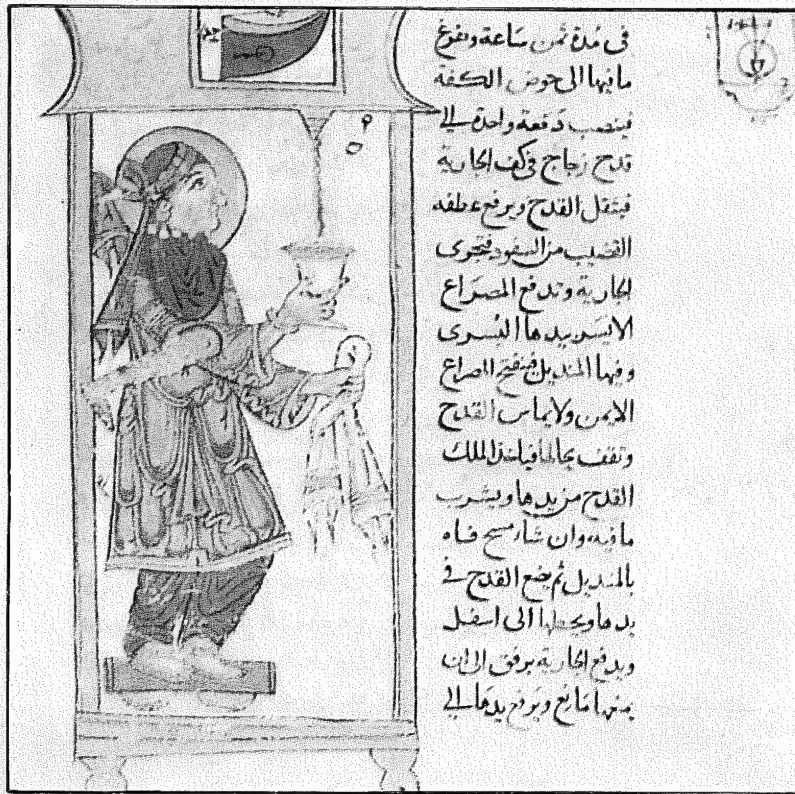 فى مدة ثمن ساعة وتفرغ
ما فيها الى حوض الكفة
فينصب دفعة واحدة الى
قدح زجاج فى كف الجارية
فيثقل القدح ويرفع عطفه
القضيب من السفود فتجرى
الجارية وتدفع المصراع
الايسر بيدها اليسرى
وفيها المنديل فينفتح المصراع
الايمن ولا يماس القدح
وتقف بحالها فياخذ الملك
القدح من يدها ويشرب
ما فيه وان شاء مسح فاه
بالمنديل ثم يضع القدح فى
يدها ويحطها الى اسفل
ويدفع الجارية برفق الى ان
يمنعها مانع ويرفع يدها الى